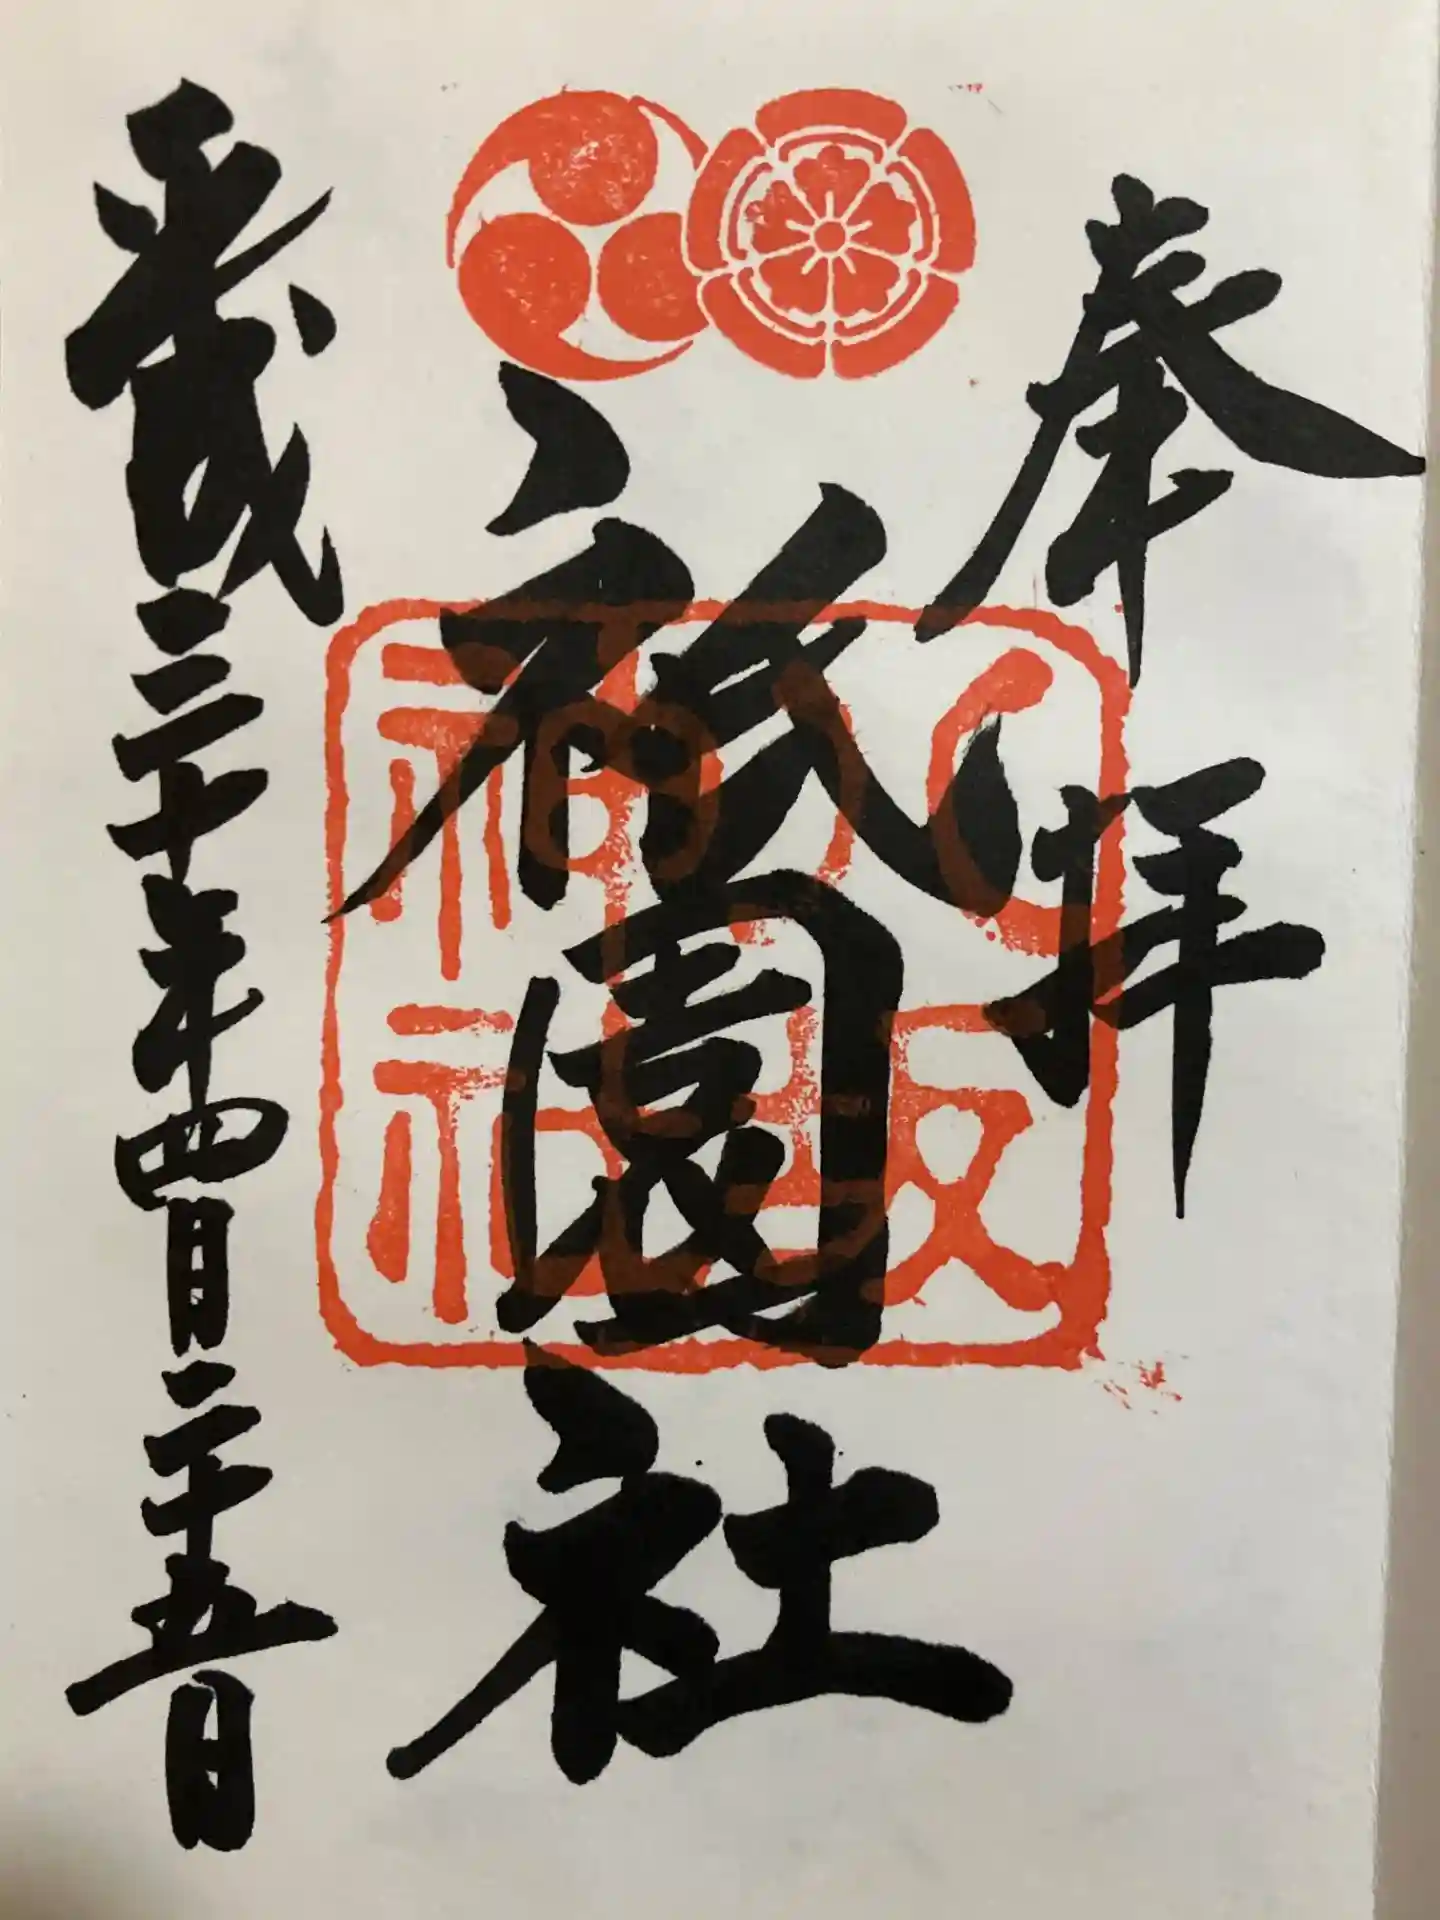 奉拝
祇園社
八坂神社
平成三十年四月二十五日